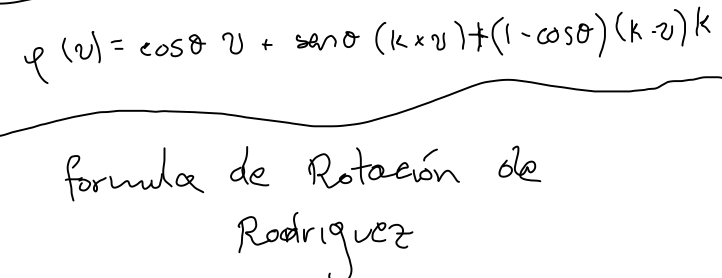 φ(v) = cosθ v + senθ (k × v) + (1 - cosθ)(k · v) k
formula de Rotación de
Rodriguez